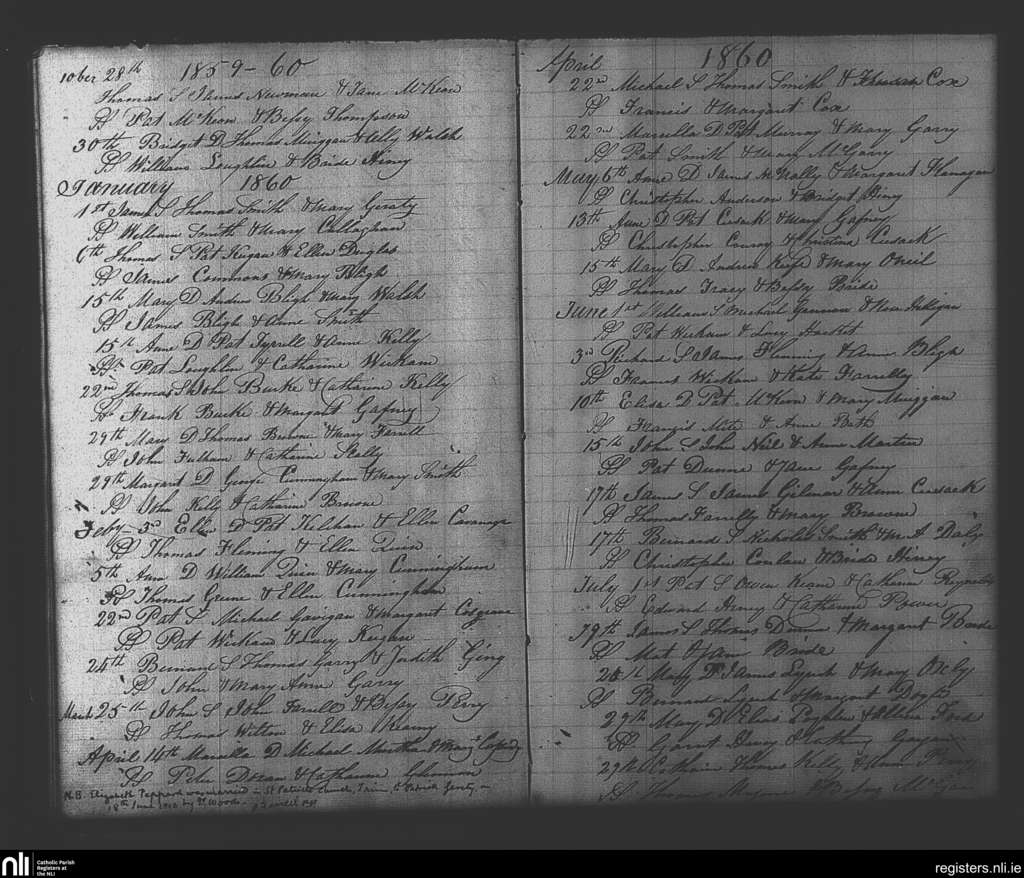 10ber 28th 1859-60
Thomas S James Newman & Jane McKeon
Pat McKeon & Bessy Thompson
30th Bridget D Thomas Muggan & Ally Walsh
William Loughlin & Bride Hiney
January 1860
1st James S Thomas Smith & Mary Geraty
William Smith & Mary Callaghan
6th Thomas S Pat Kegan & Ellen Douglas
James Commons & Mary Bligh
15th Mary D Andrew Bligh & Mary Walsh
James Bligh & Anne Smith
15th Anne D Pat Tyrrell & Anne Kelly
Pat Loughlin & Catharine Wickam
22nd Thomas S John Burke & Catharine Kelly
Frank Burke & Margaret Gafney
29th Mary D Thomas Browne & Mary Farrill
John Fulham & Catherine Scally
29th Margaret D George Cunningham & Mary Smith
John Kelly & Catharine Browne
Feby 3rd Ellen D Pat & Ellen Cavanagh
Thomas Fleming & Ellen Quin
5th Ann D William Quin & Mary Cunningham
Thomas Greene & Ellen Cunningham
22nd Pat S Michael Gavigan & Margaret Cosgrave
Pat Wickam & Lucy Keegan
24th Bernard S Thomas Garry & Judith Ging
John & Mary Anne Garry
March 25th John S John Farrell & Bessy
Thomas Wilton & Eliza Kearny
April 14th Marcella D Michael Murtha & Mary
Peter Doran & Catharine
N.B. Elizabeth Peppard was married in St Patricks Church, Trim, to Patrick Geraty on
18th June 1890 by Fr Woods
April 1860
22nd Michael S Thomas Smith & Cox
Francis & Margaret Cox
22nd Marcella D Pat Murray & Mary Garry
Pat Smith & Mary McGarry
May 6th Anne D James McNally & Margaret Flanagan
Christopher Anderson & Bridget Hiny
13th Anne D Pat Cusack & Mary Gafney
Christopher Conroy & Christina Cusack
15th Mary D Andrew Keefe & Mary Oneil
Thomas Tracy & Bessy Bride
June 1st William S Michael Gannon & Halligan
Pat Wickam & Lucy Hacket
3rd Richard S James Fleming & Anne Bligh
Frances Wickam & Kate Farrelly
10th Eliza D Pat McKeon & Mary Muggan
Francis & Anne Bath
15th John S John Neil & Anne Martin
Pat Dunne & Jane Gafney
17th James S James Gilmor & Ann Cusack
Thomas Farrelly & Mary Browne
17th Bernard S Nicholas Smith & M A Daly
Christopher Conlan & Bride Hiney
July 1st Pat S Owen Keane & Catharin Reynolds
Edward Henry & Catharine Power
19th James S Thomas Dunne & Margaret Bride
Mat & Jane Bride
Mary D James Lynch & Mary
Bernard Lynch & Margaret Doyle
29th Mary D &
Garret Henry &
29th Catharin Thomas Kelly & Anne
Thomas & Bessy
nli
Catholic Parish
Registers at
the NLI
registers.nli.ie